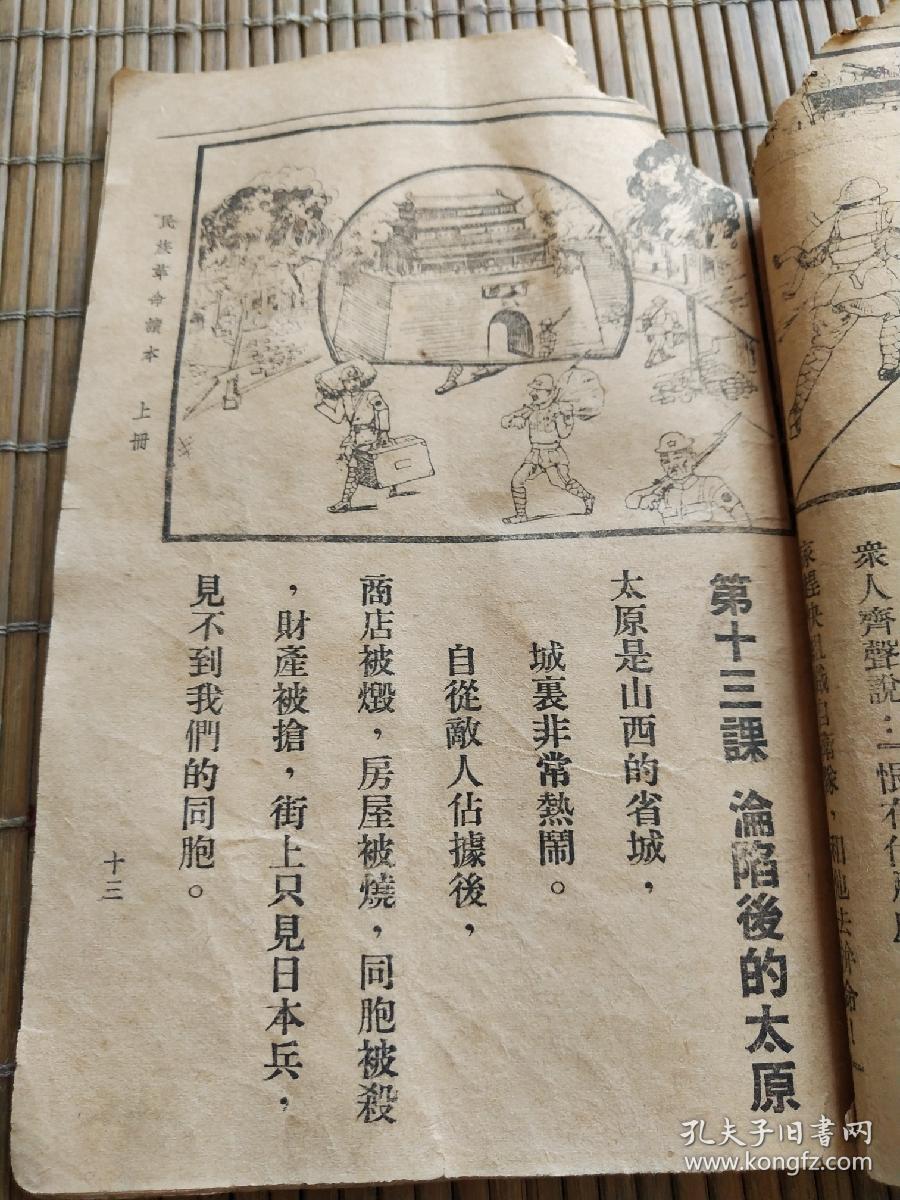 衆人齊聲說：
第十三課　淪陷後的太原
太原是山西的省城，
城裏非常熱鬧。
自從敵人佔據後，
商店被燬，房屋被燒，同胞被殺
，財產被搶，街上只見日本兵，
見不到我們的同胞。
十三
民族革命讀本　上冊
孔夫子旧书网
www.kongfz.com